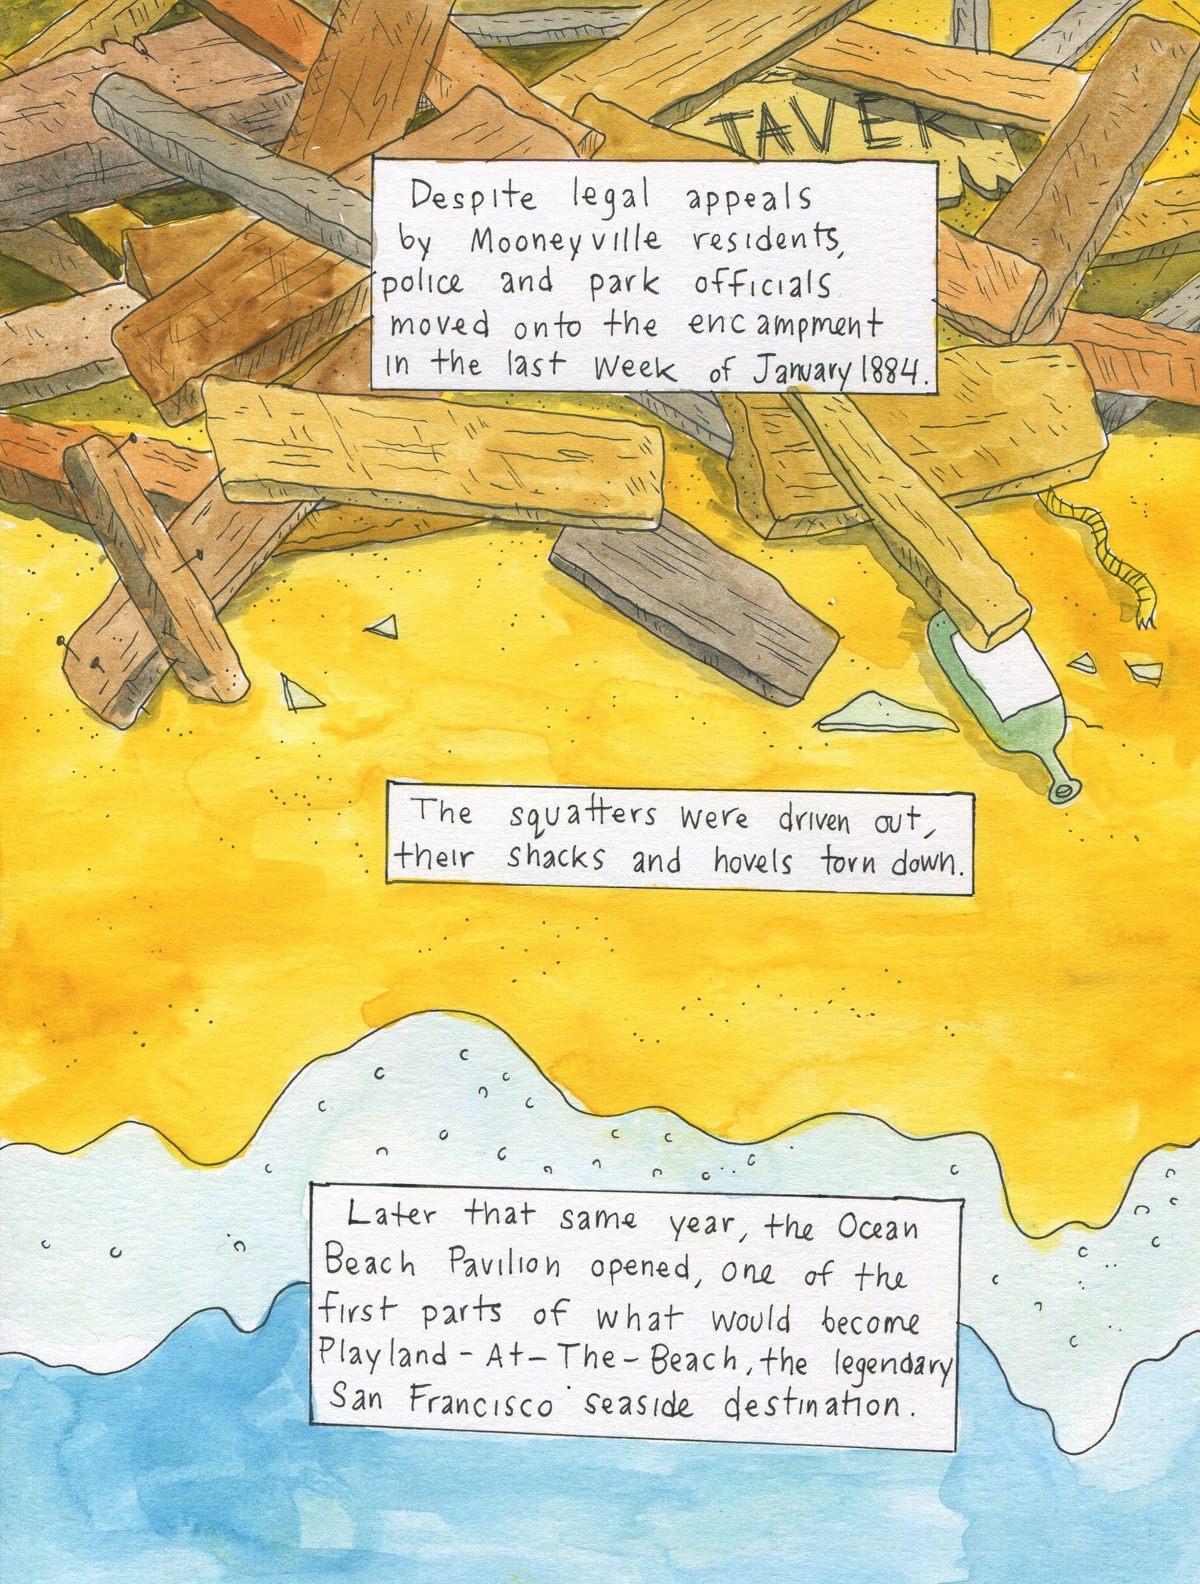 TAVER
Despite legal appeals
by Mooneyville residents,
police and park officials
moved onto the encampment
in the last week of January 1884.
The squatters were driven out,
their shacks and hovels torn down.
Later that same year, the Ocean
Beach Pavilion opened, one of the
first parts of what would become
Playland-At-The-Beach, the legendary
San Francisco seaside destination.